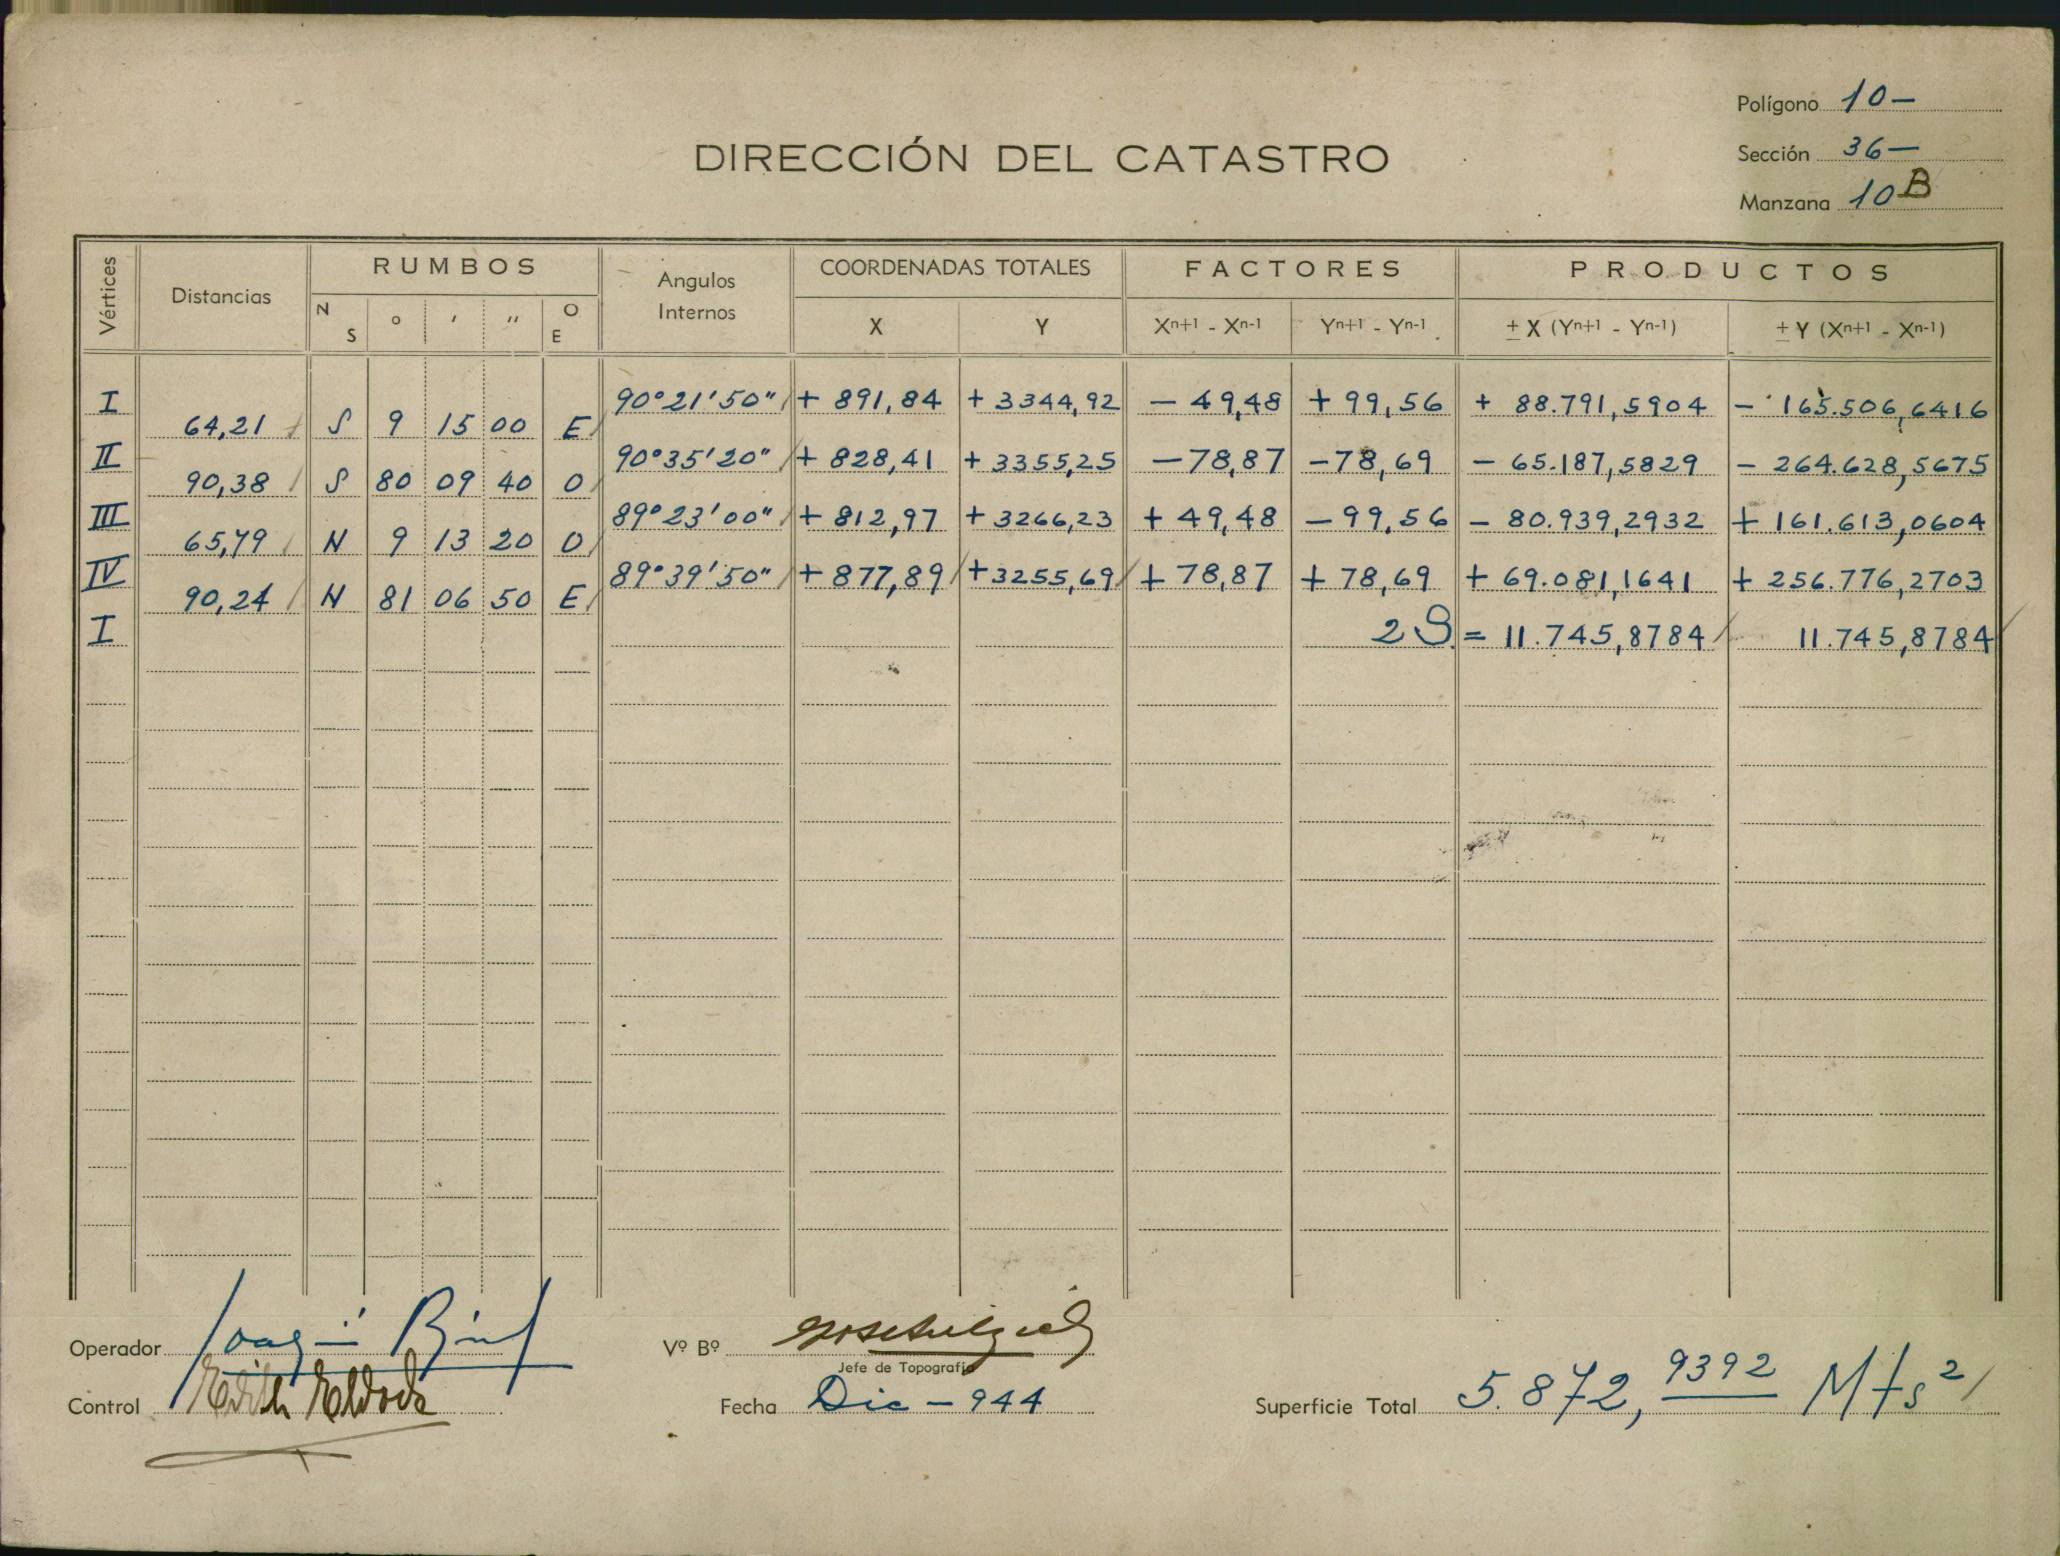 Polígono 10 —
DIRECCIÓN DEL CATASTRO
Sección 36 —
Manzana 10 B
Vértices Distancias RUMBOS Angulos Internos COORDENADAS TOTALES FACTORES PRODUCTOS
N S o ' '' O E X Y Xn+1 - Xn-1 Yn+1 - Yn-1 ± X (Yn+1 - Yn-1) ± Y (Xn+1 - Xn-1)
I 90°21'50" + 891,84 + 3344,92 - 49,48 + 99,56 + 88.791,5904 - 165.506,6416
64,21 S 9 15 00 E
II 90°35'20" + 828,41 + 3355,25 - 78,87 - 78,69 - 65.187,5829 - 264.628,5675
90,38 S 80 09 40 O
III 89°23'00" + 812,97 + 3266,23 + 49,48 - 99,56 - 80.939,2932 + 161.613,0604
65,79 N 9 13 20 O
IV 89°39'50" + 877,89 + 3255,69 + 78,87 + 78,69 + 69.081,1641 + 256.776,2703
90,24 N 81 06 50 E
I 2S = 11.745,8784 11.745,8784
Operador Joaquín
Vº Bº
Jefe de Topografía
Control Edith
Fecha Dic - 944
Superficie Total 5.872,9392 Mts2